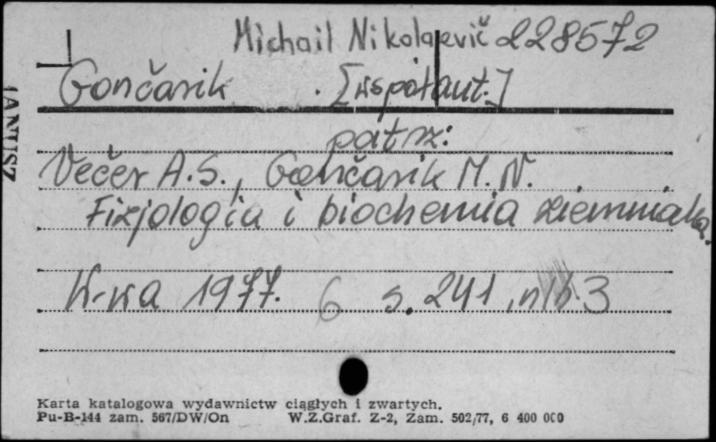 Michail Nikolajevič 228572
Gončarik . [współaut.]
patrz:
Večer A.S., Gončarik M. N.
Fizjologia i biochemia ziemniaka.
W-wa 1977. 6 s. 241, nlb. 3
Karta katalogowa wydawnictw ciągłych i zwartych.
Pu-B-144 zam. 567/DW/On W.Z.Graf. Z-2, Zam. 502/77, 6 400 000
JANTUSZ